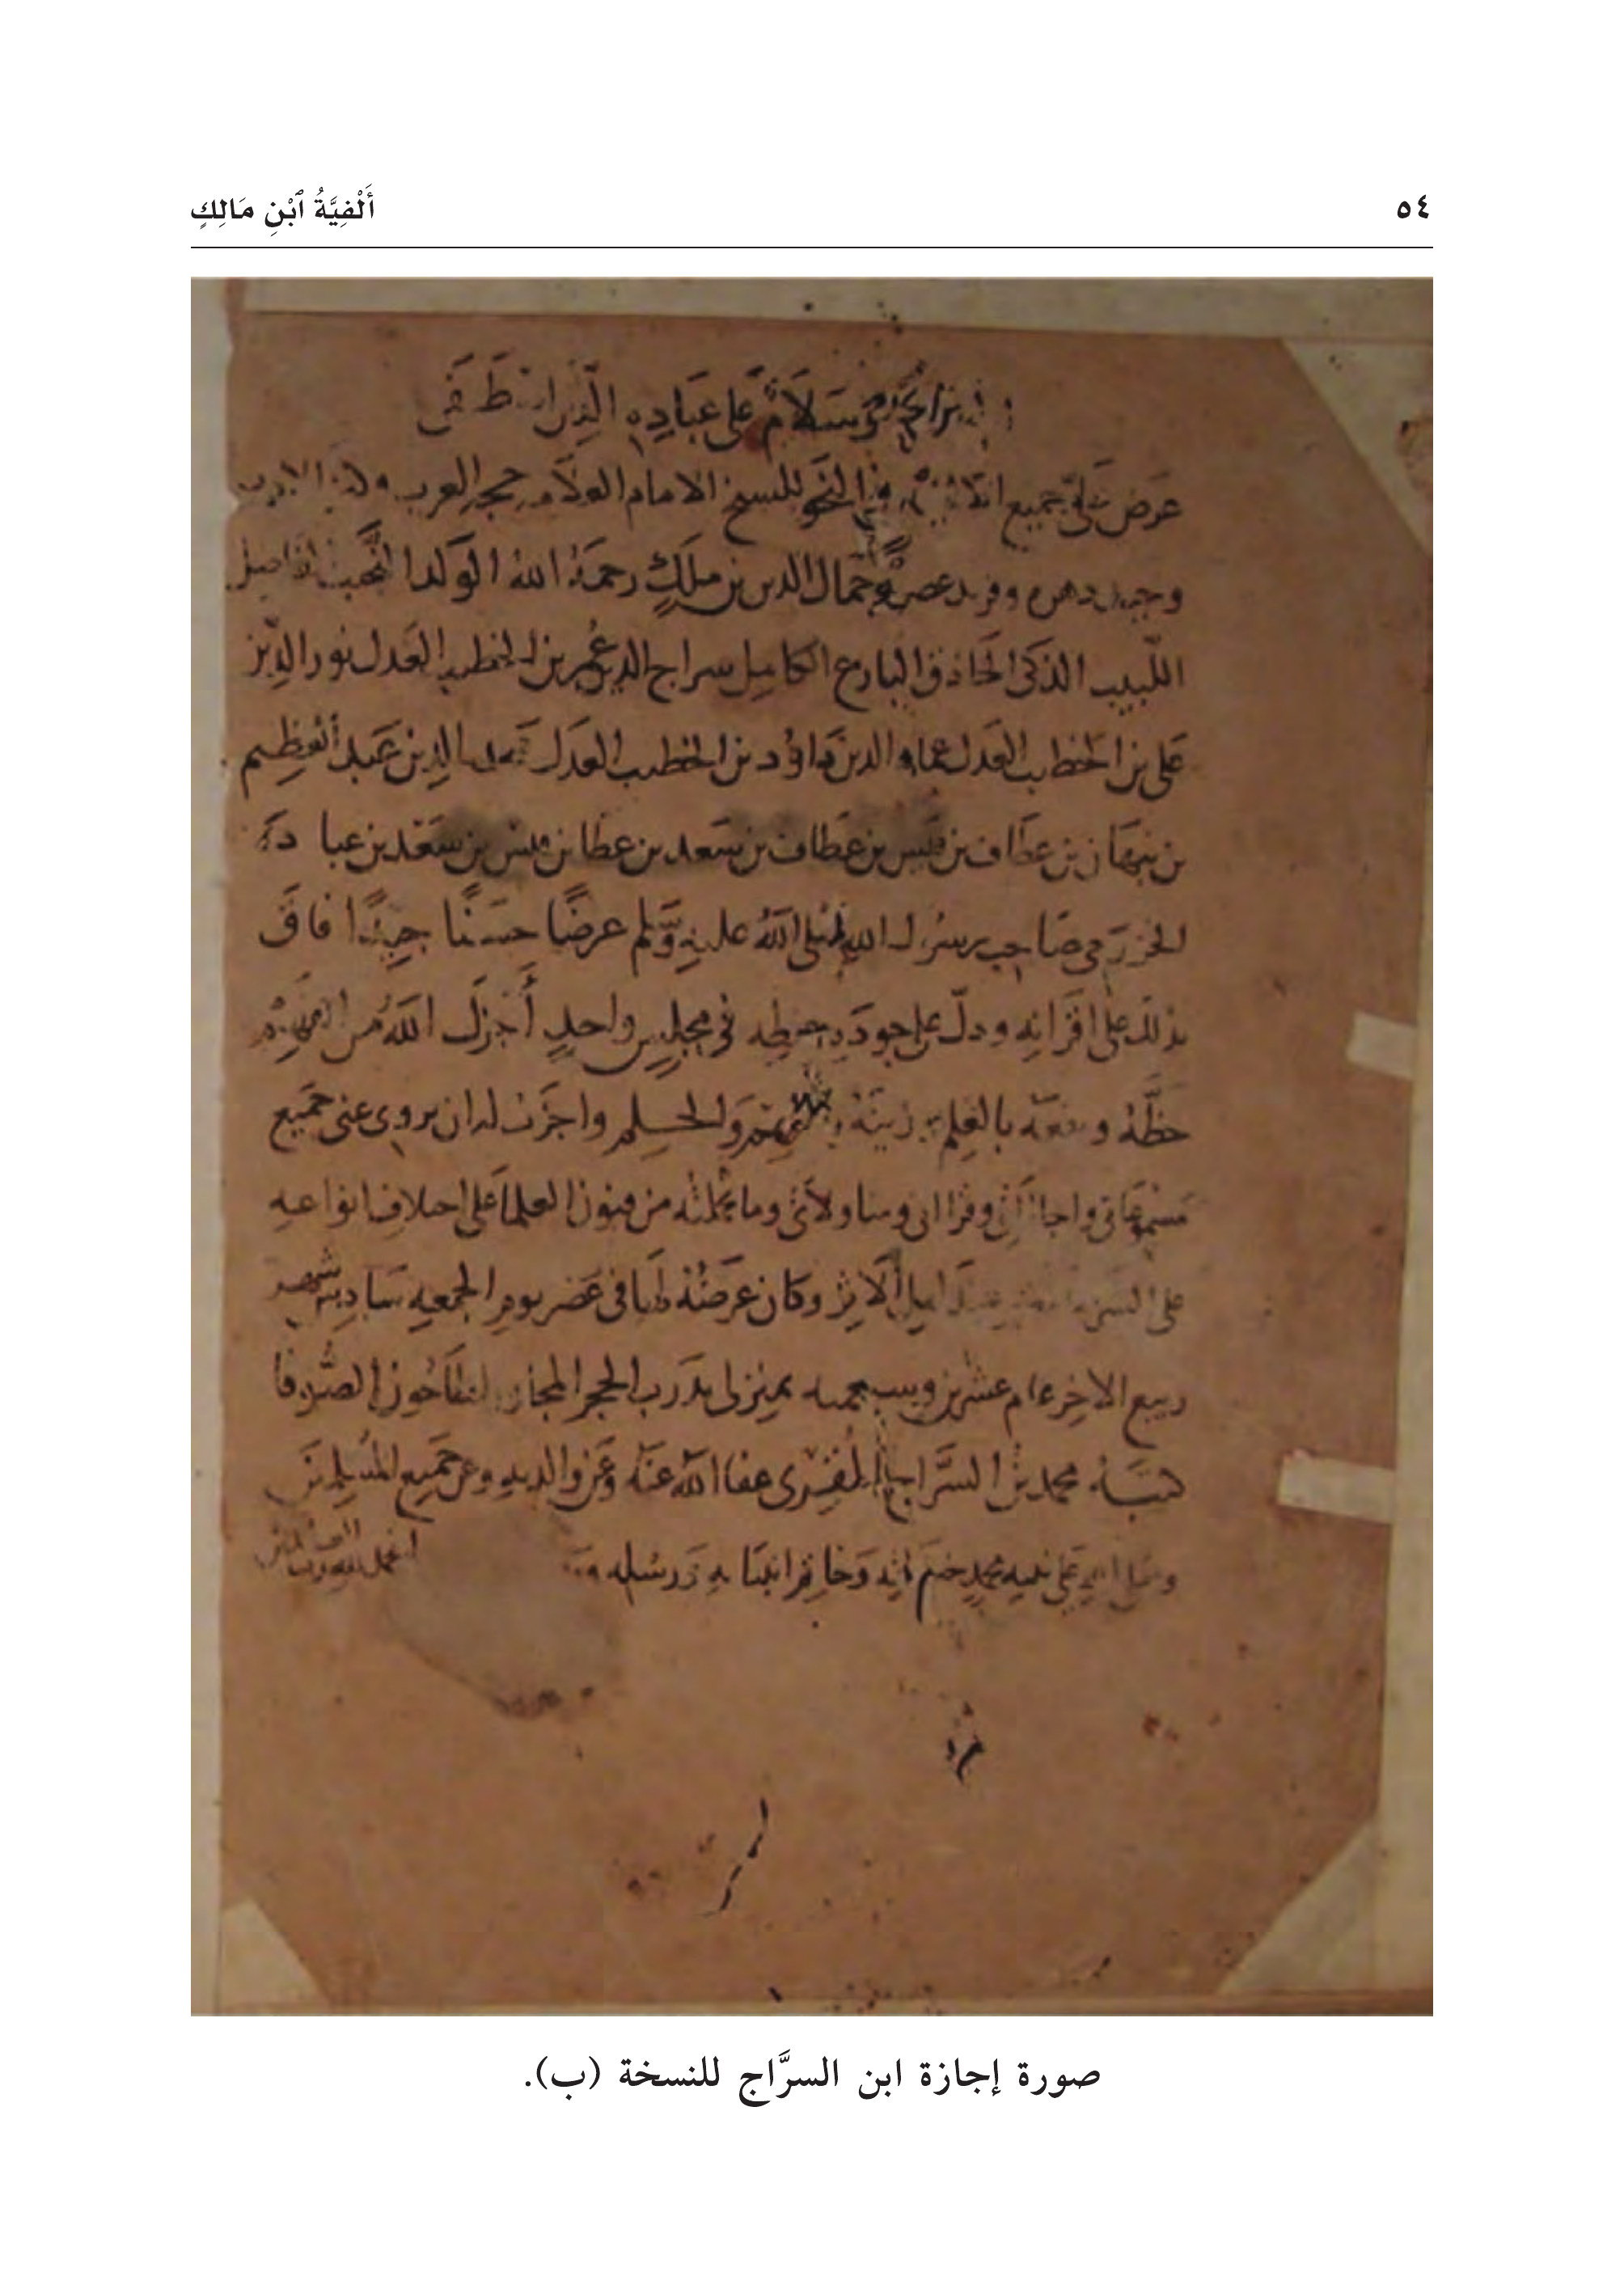 ٥٤
أَلْفِيَّةُ ٱبْنِ مَالِكٍ
وَسَلَامٌ على عبَادِهِ الَّذين اصطَفَى
عَرض عَلَيَّ جميع في النحو للشيخ الامام العلَّامه حجه العرب
وحيد دهره وفريد عصره جمَال الدين بن ملكٍ رحمَهُ اللهُ الوَلد النَّجيب الفاضل
اللّبيب الذكي الحَاذق البارع الكامِل سراج الدين عُمر بن الخطيب العَدل نور الدِّين
عَلي بن الخطيب العَدل عماد الدين دَاوُد بن الخطيب العَدل الدين عَبد العَظِيم
بن نبهَان بن عطَاف بن قَيس بن عَطاف بن سَعد بن عطا بن قيس بن سَعْد بن عبا دَه
الخزرَجي صَاحِب رسُول الله صَلى اللهُ عليهِ وسَّلم عرضًا حسَنًا جيِّدًا فَاقَ
بذلك عَلى اقرَانِهِ ودلَّ على جودَة حفظِهِ في مجلِسٍ واحدٍ أَجزَل اللهُ من
حَظَّهُ ونفعَهُ بالعِلم وزينَهُ وَالحِلم واجَزتُ له ان يروي عني جَميع
مَسْموعَاتي واجازاتي وقراآتي ومناولاتي وما من فنون العلما عَلى اختلافِ انواعه
على عند اهل الأثر وكان عَرضُهُ لها في عَصر يوم الجمعه سَادِس شهر
ربيع الاخِر عام عشرين وسبعمايه بمنزلي بدَرب الحجر
كتبَه محمد بن السَّراج المُقْرِي عفا اللهُ عنَهُ وعَن والديهِ وعَن جَميع المُسلِمين
وصَلى الله عَلى نبيه محمدٍ خَاتم انبيَا يهِ وَرسُله
الحمد لله رب العالمين
صورة إجازة ابن السرَّاج للنسخة (ب).